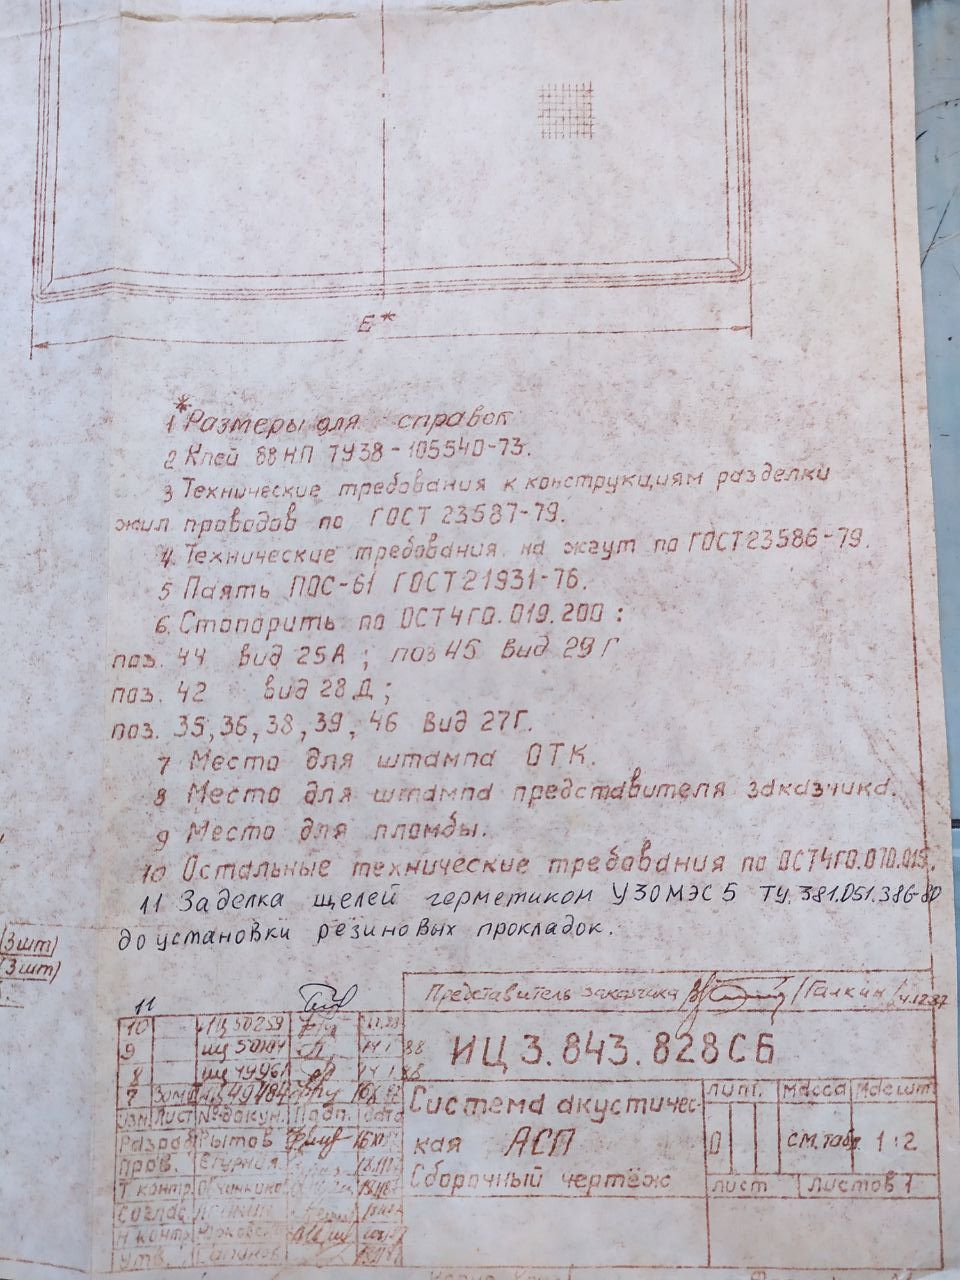 Б*
1* Размеры для справок
2 Клей 88НП ТУ38-105540-73.
3 Технические требования к конструкциям разделки
жил проводов по ГОСТ 23587-79.
4 Технические требования на жгут по ГОСТ23586-79.
5 Паять ПОС-61 ГОСТ21931-76.
6 Стопорить по ОСТ4ГО.019.200:
поз. 44 вид 25А; поз 45 вид 29Г
поз. 42 вид 28Д;
поз. 35,36,38,39,46 вид 27Г.
7 Место для штампа ОТК.
8 Место для штампа представителя заказчика.
9 Место для пломбы.
10 Остальные технические требования по ОСТ4ГО.070.015.
11 Заделка щелей герметиком У30МЭС5 ТУ.381.051.386-80
до установки резиновых прокладок.
(3шт)
(3шт)
Представитель заказчика /Галкин/
11
10 ИЦ50259
9
8
7
Изм. Лист № докум. Подп. Дата
Разраб Рытов
Пров.
Т контр.
Соглас
Н контр
Утв.
ИЦ3.843.828СБ
Система акустичес-
кая АСП
Сборочный чертёж
Лит. Масса Масшт
О см.табл 1:2
Лист Листов 1